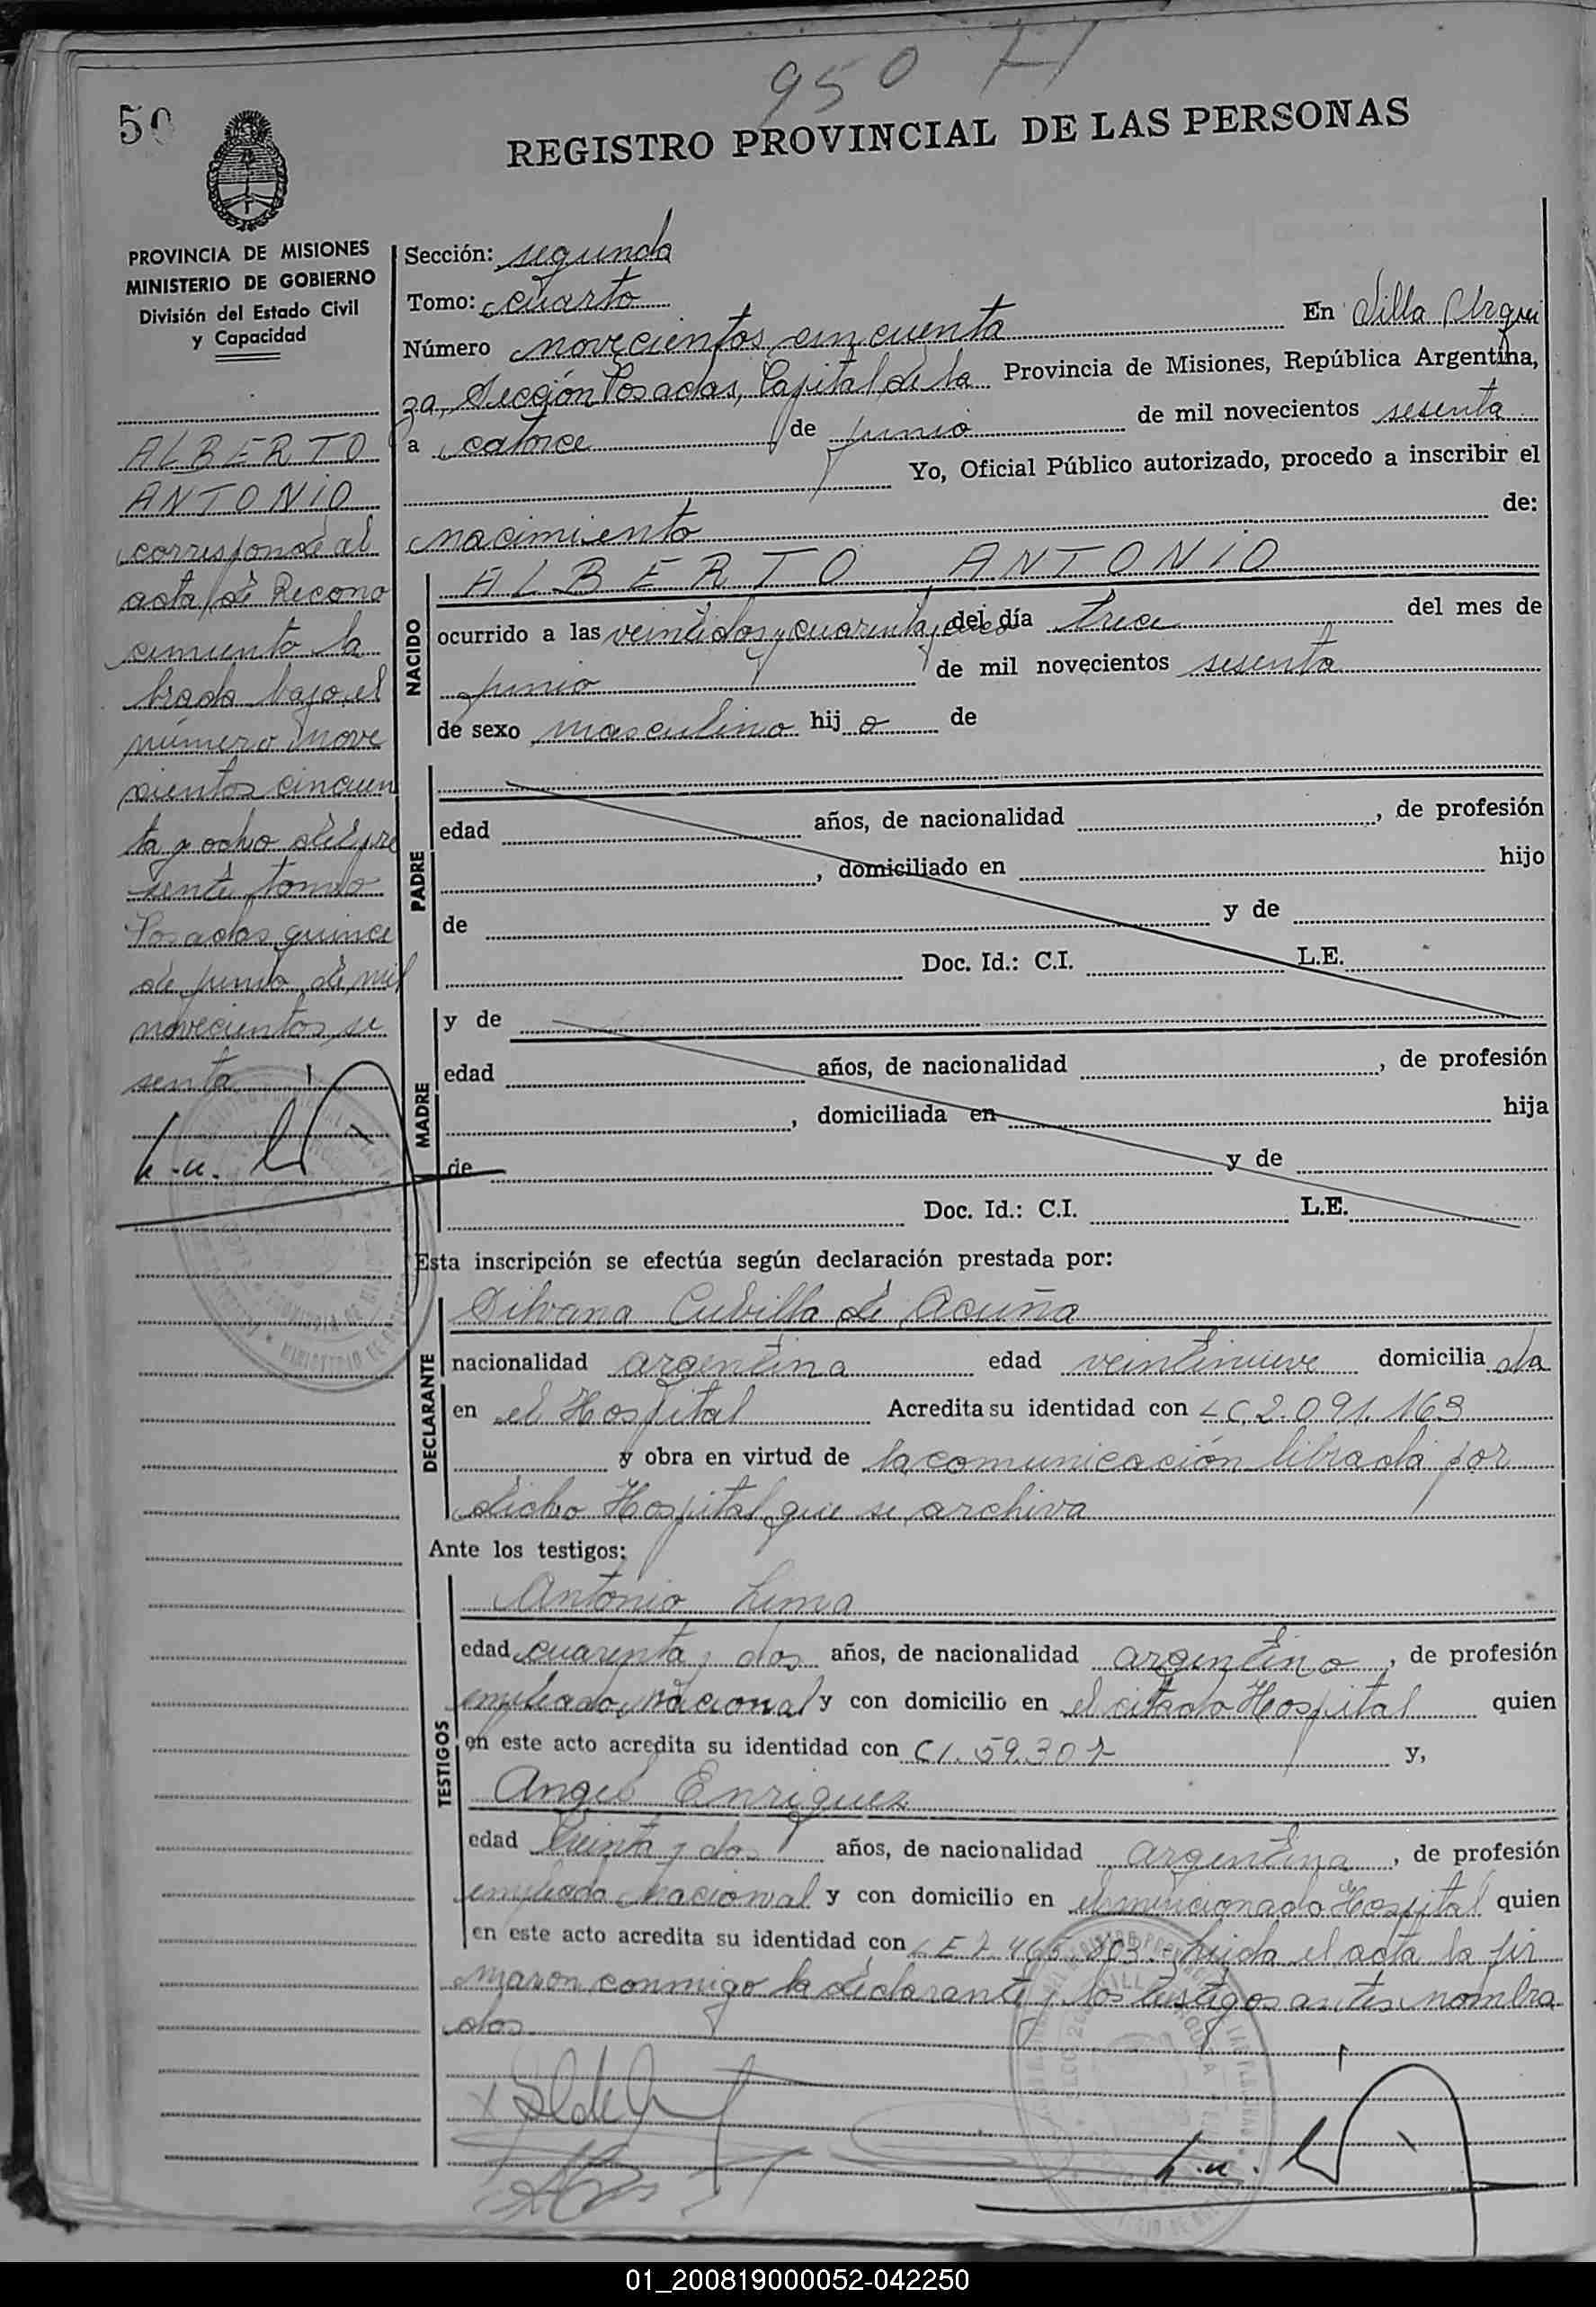 950 H
50
REGISTRO PROVINCIAL DE LAS PERSONAS
PROVINCIA DE MISIONES
MINISTERIO DE GOBIERNO
División del Estado Civil
y Capacidad
ALBERTO
ANTONIO
corresponde al
acta de Recono
cimiento la
brada bajo el
número nove
cientos cincuen
ta y ocho del pre
sente tomo
Posadas quince
de junio de mil
novecientos se
senta
Sección: segunda
Tomo: cuarto
Número novecientos cincuenta En Villa Urqui
za, Sección Posadas, Capital de la Provincia de Misiones, República Argentina,
a catorce de junio de mil novecientos sesenta
Yo, Oficial Público autorizado, procedo a inscribir el
nacimiento de:
NACIDO
ALBERTO ANTONIO
ocurrido a las veintidos y cuarenta y cinco del día trece del mes de
junio de mil novecientos sesenta
de sexo masculino hij o de
PADRE
edad años, de nacionalidad , de profesión
, domiciliado en hijo
de y de
Doc. Id.: C.I. L.E.
MADRE
y de
edad años, de nacionalidad , de profesión
, domiciliada en hija
de y de
Doc. Id.: C.I. L.E.
Esta inscripción se efectúa según declaración prestada por:
DECLARANTE
Silvana Cubilla de Acuña
nacionalidad argentina edad veintinueve domicilia da
en el Hospital Acredita su identidad con LC 2.091.163
y obra en virtud de la comunicación librada por
dicho Hospital que se archiva
Ante los testigos:
TESTIGOS
Antonio Lima
edad cuarenta y dos años, de nacionalidad argentino, de profesión
empleado nacional y con domicilio en el citado Hospital quien
en este acto acredita su identidad con CI. 59.307 y,
Angel Enriquez
edad treinta y dos años, de nacionalidad argentina, de profesión
empleado nacional y con domicilio en el mencionado Hospital quien
en este acto acredita su identidad con LE 7.465.803.- Leida el acta la fir
maron conmigo la declarante y los testigos antes nombra
dos
01_200819000052-042250